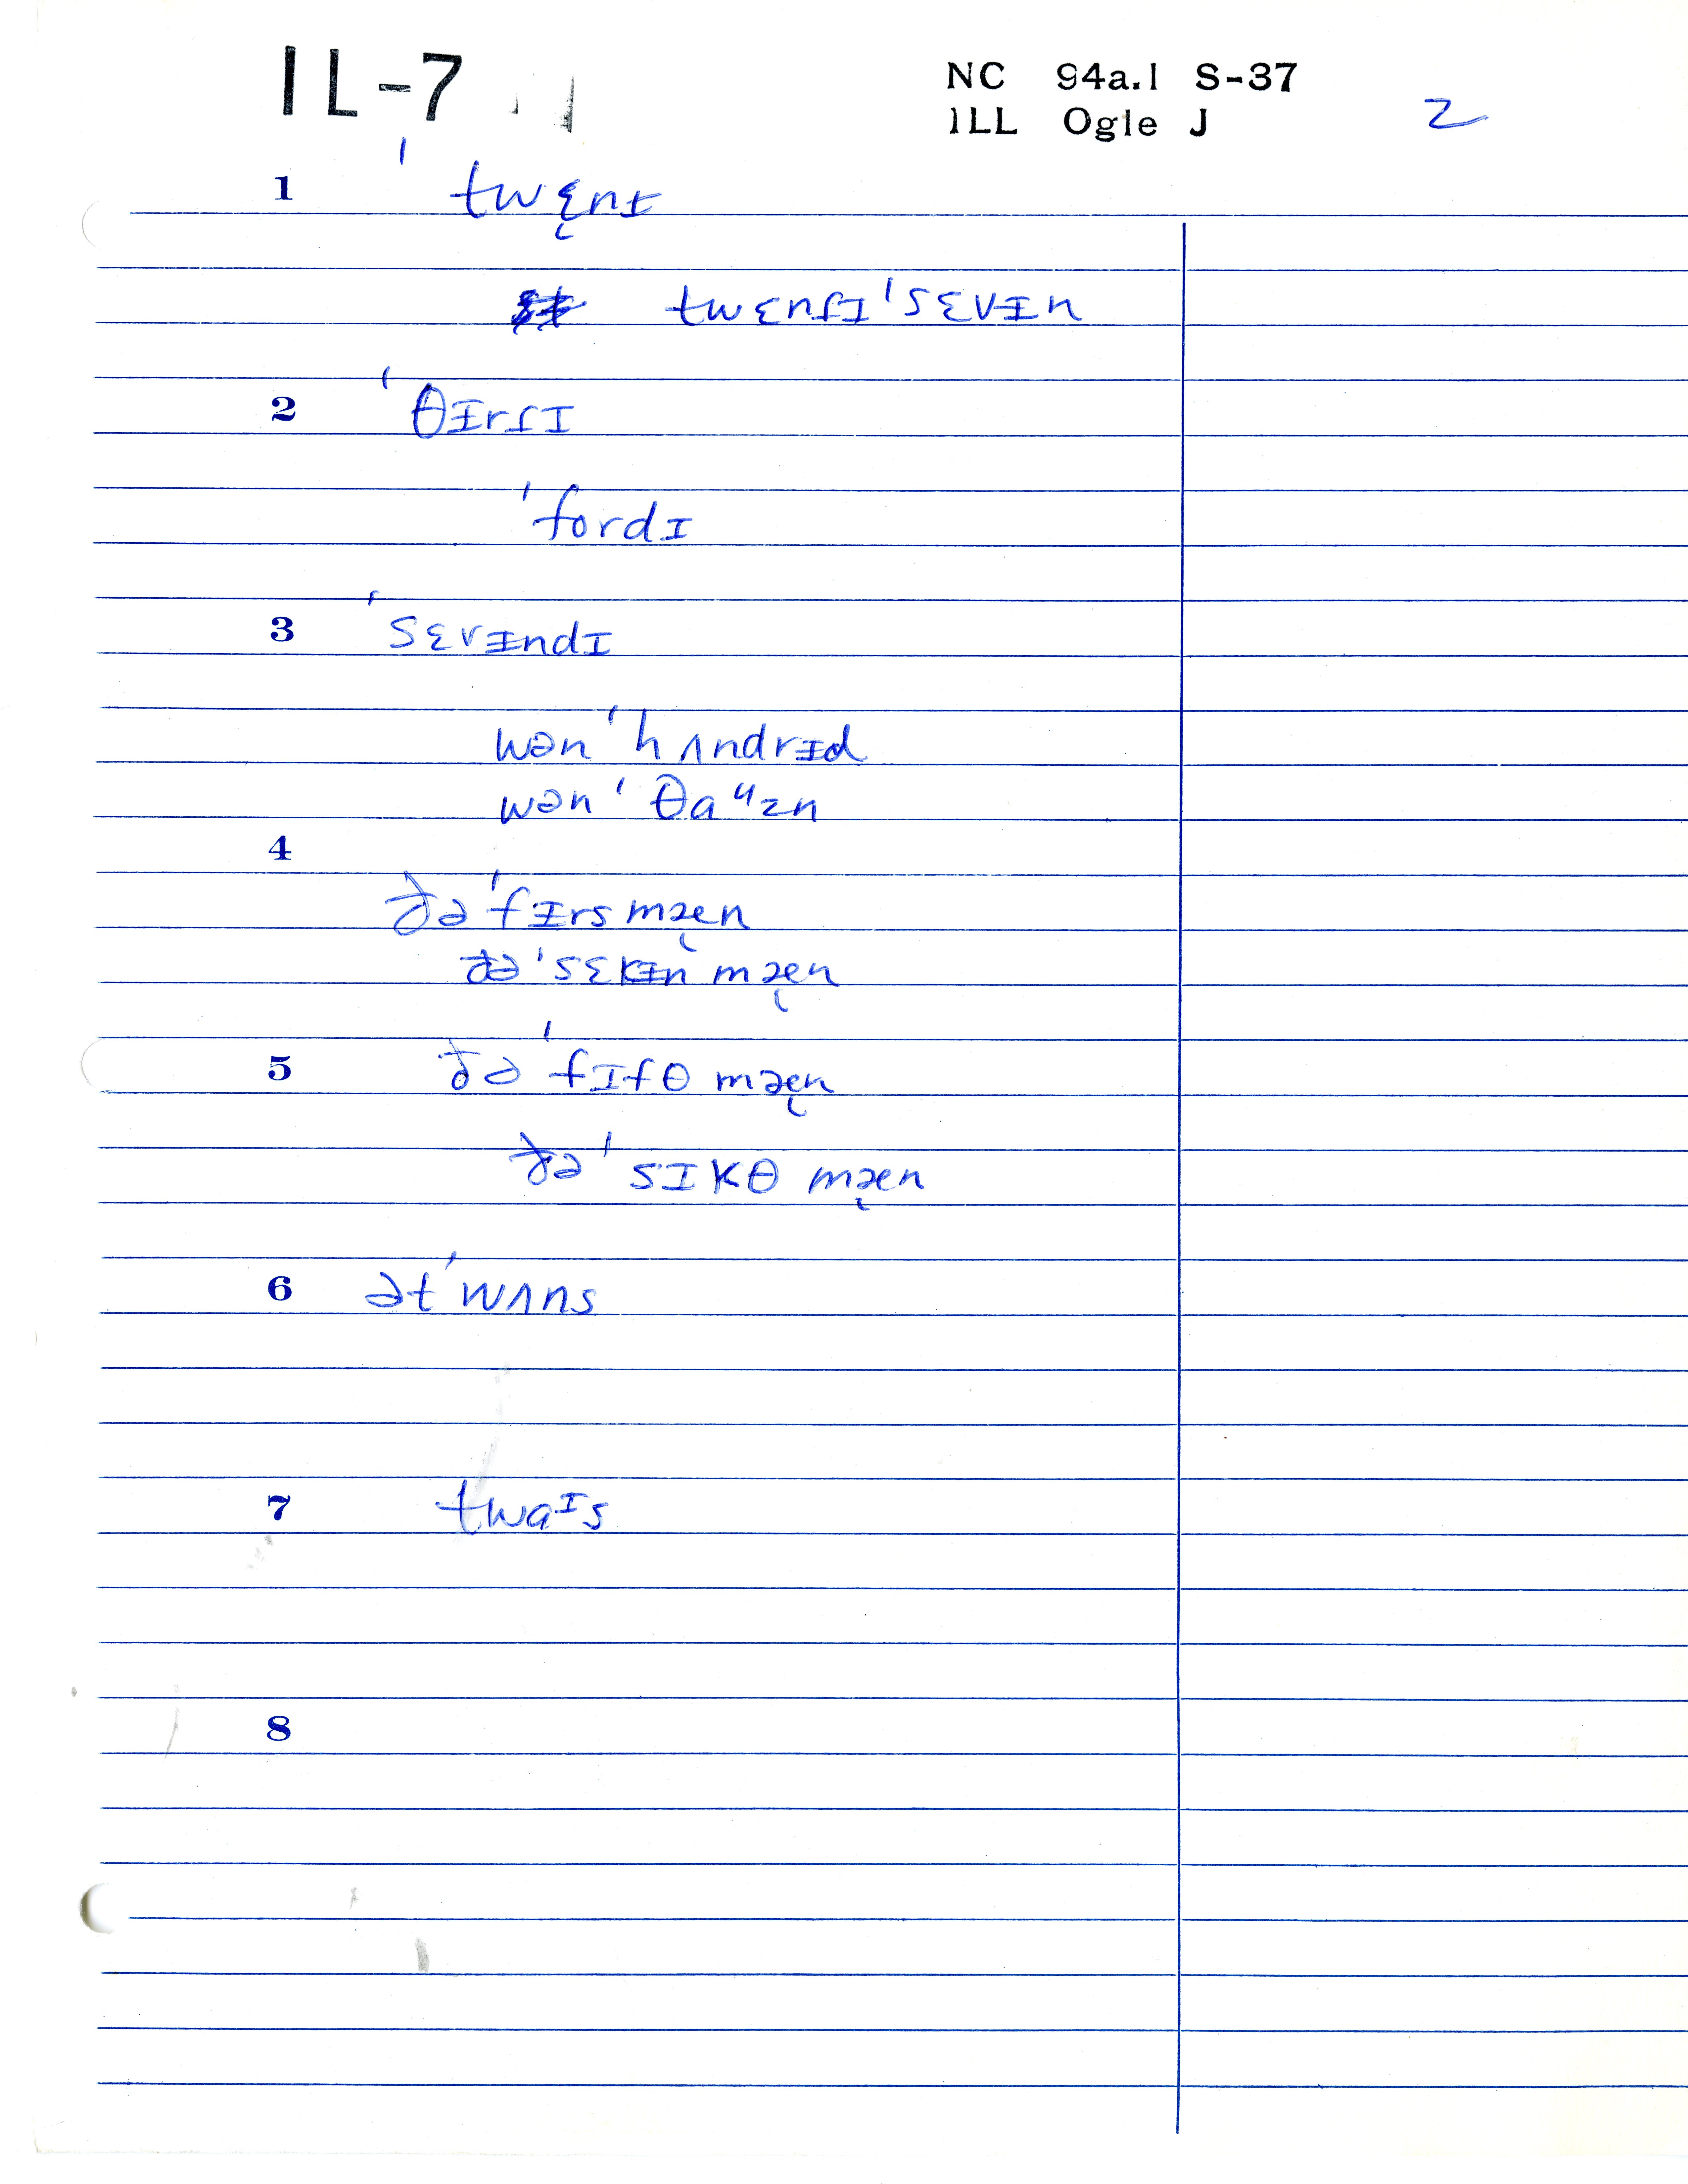 IL-7
NC 94a.1 S-37
ILL Ogle J
2
1 ˈtwɛ̨nɪ
twɛnɾɪˈsɛvɨn
2 ˈθɨrɾɪ
ˈfordɪ
3 ˈsɛvɨndɪ
wənˈhʌndrɨd
wənˈθaᵘzn
4
ðəˈfɨrs mæ̨n
ðəˈsɛkɨn mæ̨n
5 ðəˈfɪfθ mæ̨n
ðəˈsɪkθ mæ̨n
6 ətˈwʌns
7 twaᶦs
8